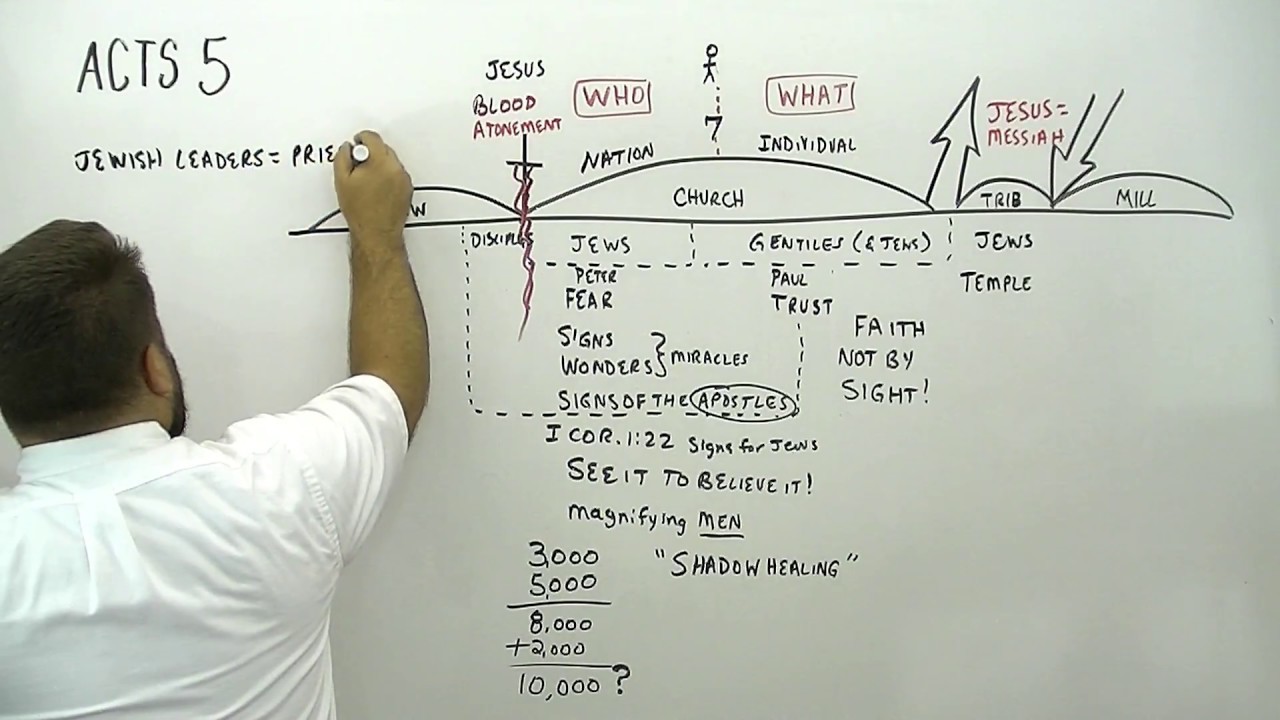 ACTS 5
JEWISH LEADERS = PRIE
JESUS
BLOOD
ATONEMENT
WHO
WHAT
7
NATION
INDIVIDUAL
JESUS =
MESSIAH
W
CHURCH
TRIB
MILL
DISCIPLES
JEWS
GENTILES (& JEWS)
JEWS
PETER
PAUL
TEMPLE
FEAR
TRUST
SIGNS
WONDERS } MIRACLES
FAITH
NOT BY
SIGHT!
SIGNS OF THE APOSTLES
I COR. 1:22 Signs for Jews
SEE IT TO BELIEVE IT!
magnifying MEN
"SHADOW HEALING"
3,000
5,000
8,000
+2,000
10,000 ?